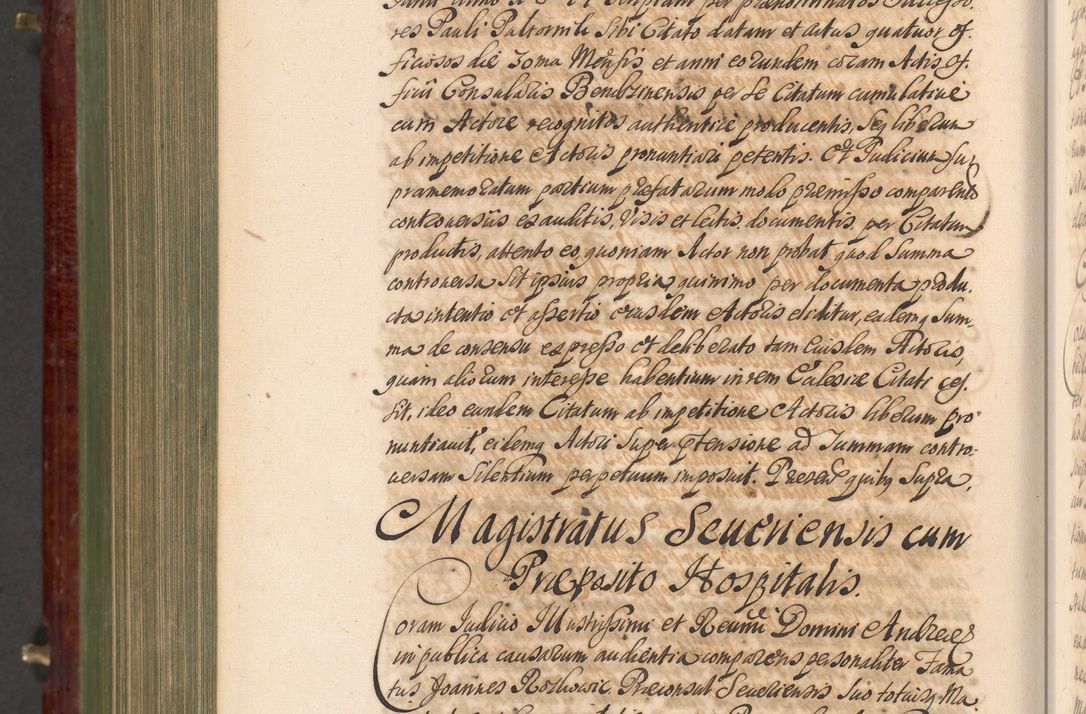 res Pauli Paltornik Sibi Citato datum et actus quatuor of.
ficiosos die 30ma Mensis et anni eorundem coram Actis of.
ficii Consularis Bendzinensis per se Citatum cumulative
cum Actore recognitos authentice producentis, Seq liberum
ab impetitione Actoris pronuntiari petentis. Et Judicium Su
pramemoratum partium præfatarum modo præmisso comparent
controversiis exauditis, visis et lectis documentis per Citatum
productis, attento eo, quoniam Actor non probat quod Summa
controversa Sit ipsius propria, quinimo per documenta produ,
cta intentio et assertio eiusdem Actoris eliditur, eademq Sum,
ma de consensu expresso et deliberato tam Eiusdem Actoris,
quam aliorum interesse habentium in rem Ecclesiæ Citati ces.
Sit, ideo eundem Citatum ab impetitione Actoris liberum pro
nuntiavit, eidemq Actori Super ptensione ad Summam contro-
versam Silentium perpetuum imposuit. Presen quibq Supra,
Magistratus Seueriensis cum
Præposito Hospitalis.
Coram Judicio Illustrissimi et Reverendi Domini Andreæ
in publica causarum audientia comparens personaliter Fama
tus Joannes Roszkowic Præconsul Seueriensis Suo totiusq Ma.